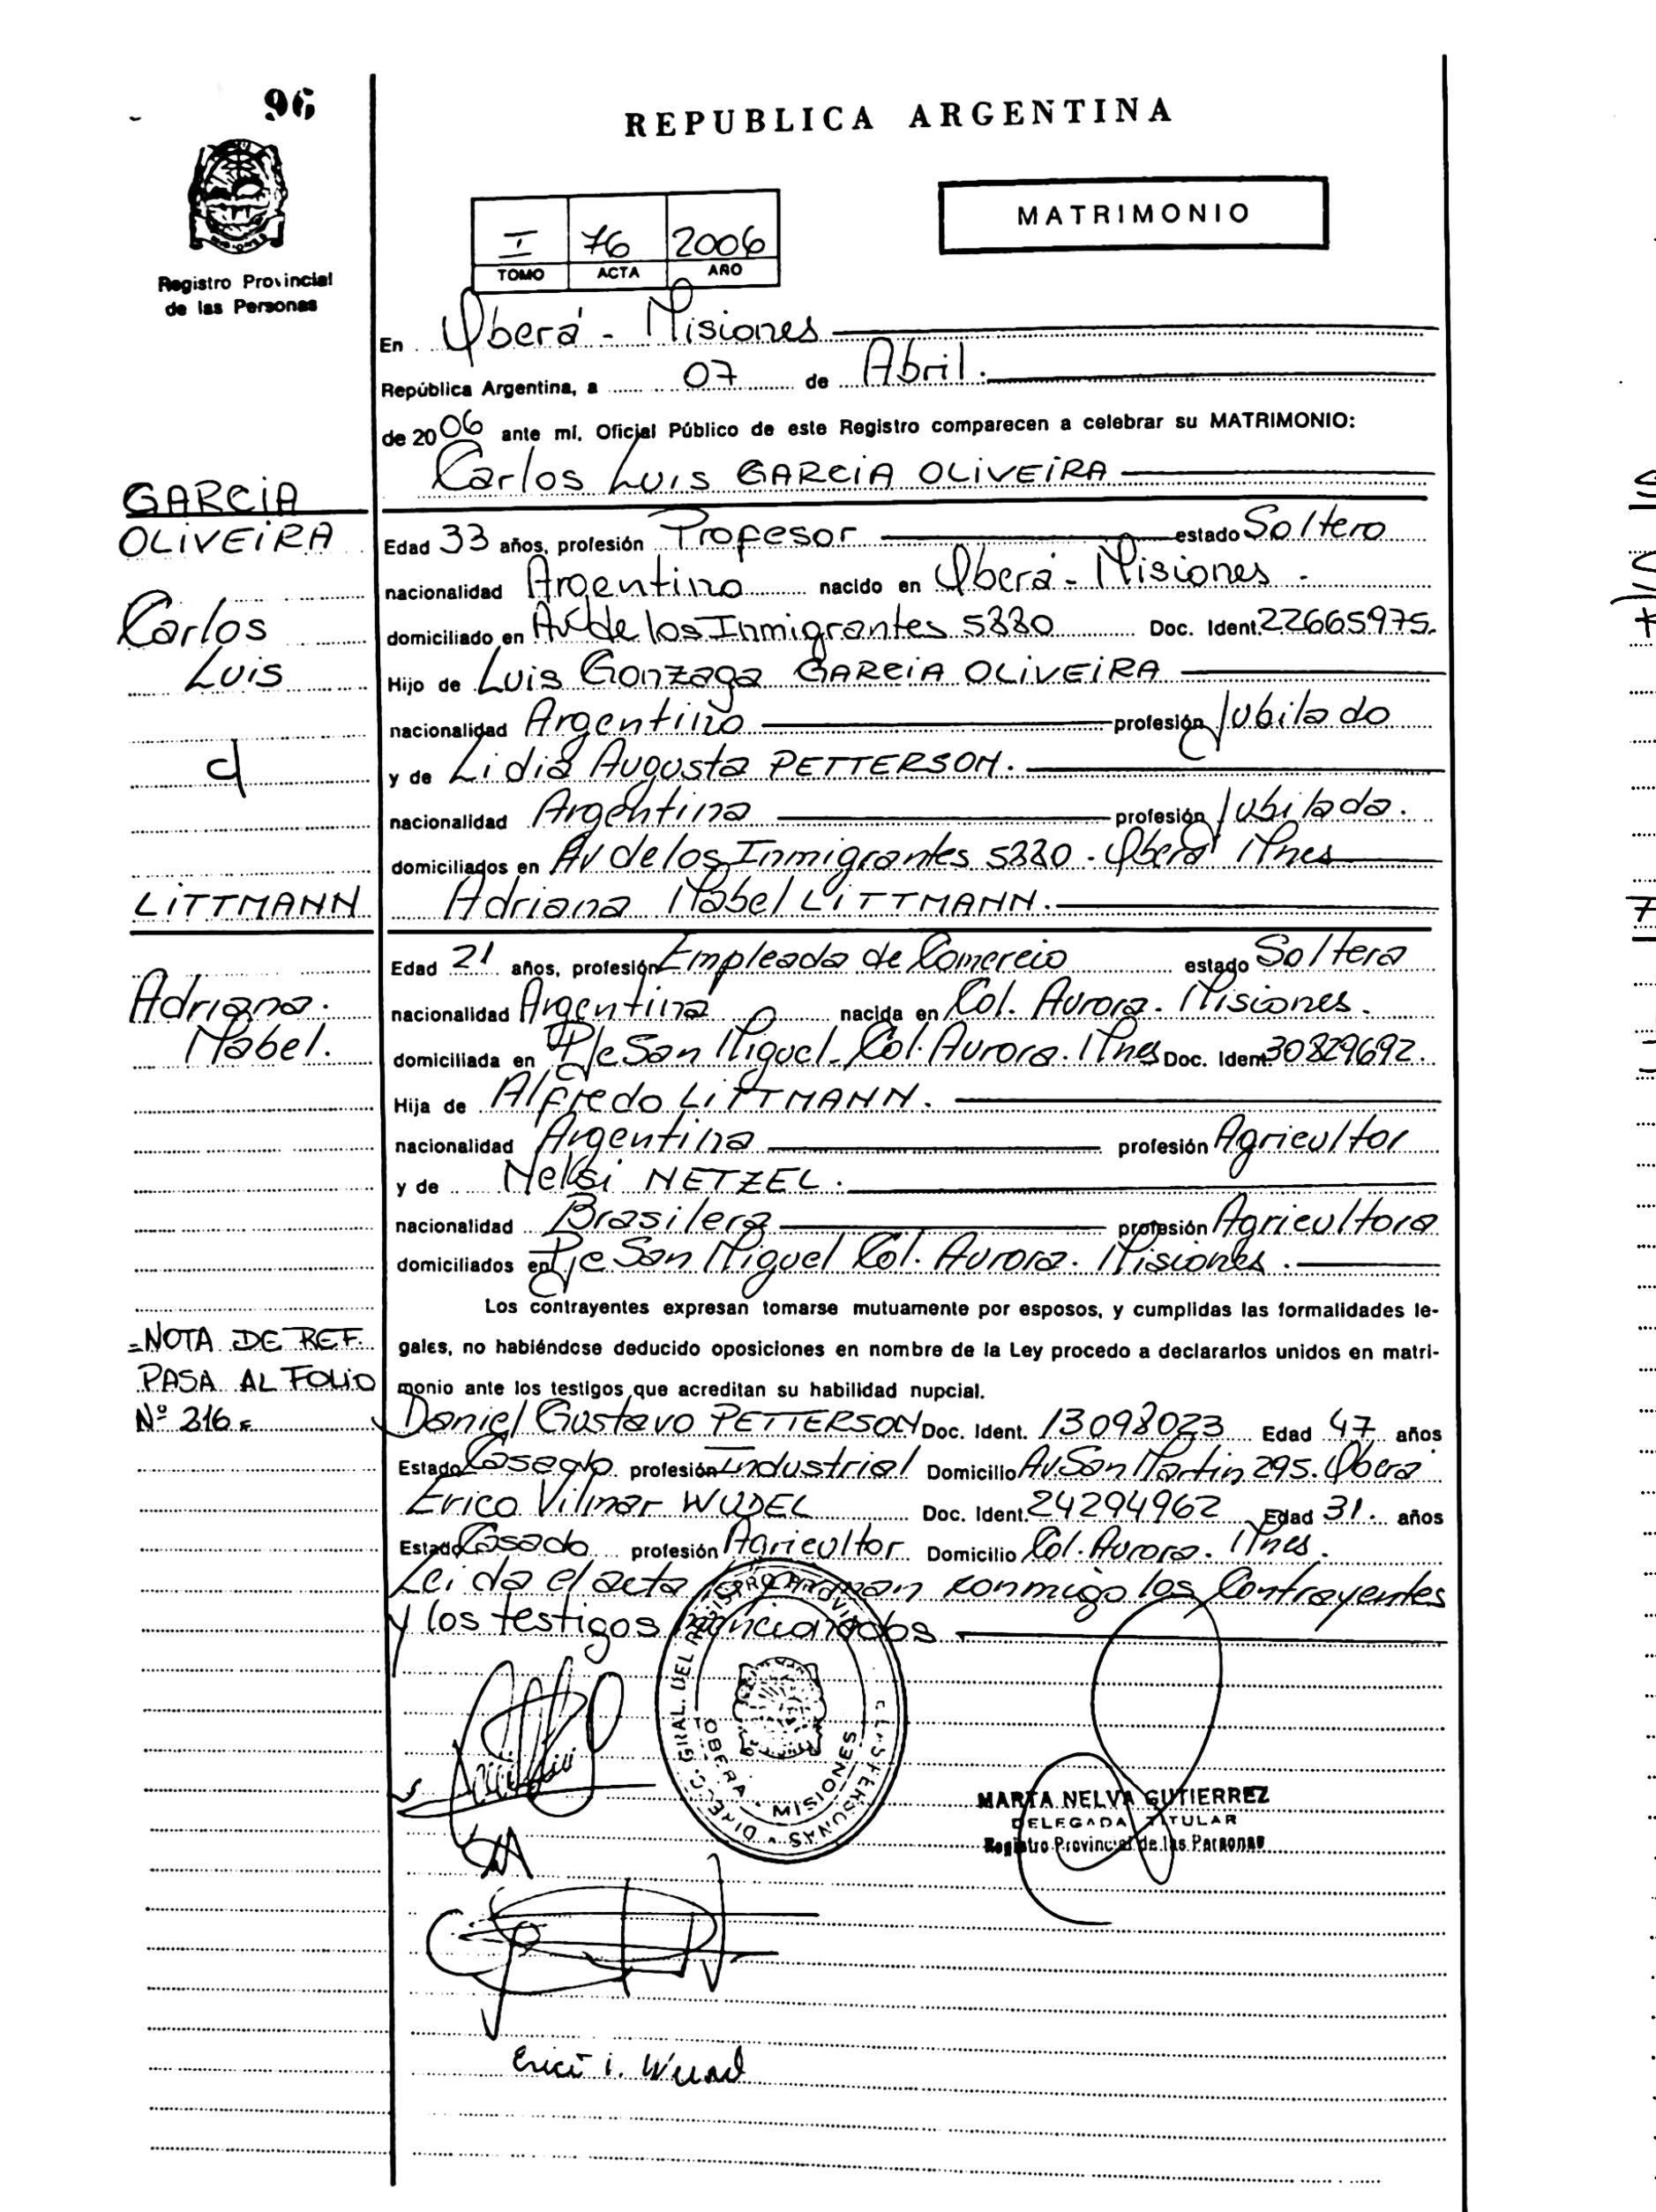 96
REPUBLICA ARGENTINA
MATRIMONIO
I 76 2006
TOMO ACTA AÑO
Registro Provincial
de las Personas
En Oberá - Misiones
República Argentina, a 07 de Abril.
de 2006 ante mí, Oficial Público de este Registro comparecen a celebrar su MATRIMONIO:
Carlos Luis GARCIA OLIVEIRA
GARCIA
OLIVEIRA
Carlos
Luis
Edad 33 años, profesión Profesor estado Soltero
nacionalidad Argentino nacido en Oberá - Misiones.
domiciliado en Av de los Inmigrantes Doc. Ident. 22665975.
Hijo de Luis Gonzaga GARCIA OLIVEIRA
nacionalidad Argentino profesión Jubilado
y de Lidia Augusta PETTERSON.
nacionalidad Argentina profesión Jubilada.
domiciliados en Av de los Inmigrantes Oberá Mnes
Adriana Mabel LITTMANN.
LITTMANN
Adriana.
Mabel.
Edad 21 años, profesión Empleada de Comercio estado Soltera
nacionalidad Argentina nacida en Col. Aurora. Misiones.
domiciliada en Pje San Miguel - Col. Aurora. Mnes Doc. Ident. 30829692.
Hija de Alfredo LITTMANN.
nacionalidad Argentina profesión Agricultor
y de NETZEL.
nacionalidad Brasilera profesión Agricultora
domiciliados en Pje San Miguel Col. Aurora. Misiones.
Los contrayentes expresan tomarse mutuamente por esposos, y cumplidas las formalidades le-
gales, no habiéndose deducido oposiciones en nombre de la Ley procedo a declararlos unidos en matri-
monio ante los testigos que acreditan su habilidad nupcial.
=NOTA DE REF.
PASA AL FOLIO
Nº 216=
Daniel Gustavo PETTERSON Doc. Ident. 13098023 Edad 47 años
Estado Casado profesión Industrial Domicilio Av. San Martin 295. Oberá
Erico Vilmar WUDEL Doc. Ident. 24294962 Edad 31. años
Estado Casado profesión Agricultor Domicilio Col. Aurora. Mnes.
Leida el acta firman conmigo los Contrayentes
y los testigos mencionados
DIRECC. GRAL. DEL REGISTRO PROVINCIAL DE LAS PERSONAS
OBERA - MISIONES
MARTA NELVA GUTIERREZ
DELEGADA TITULAR
Registro Provincial de las Personas